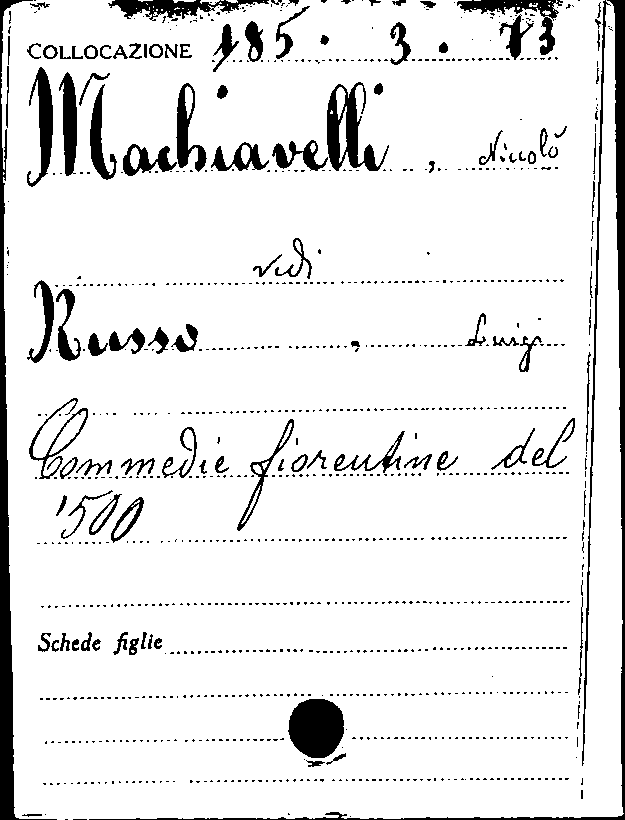 COLLOCAZIONE 185. 3. 73
Machiavelli, Niccolò
vedi
Russo, Luigi
Commedie fiorentine del
'500
Schede figlie